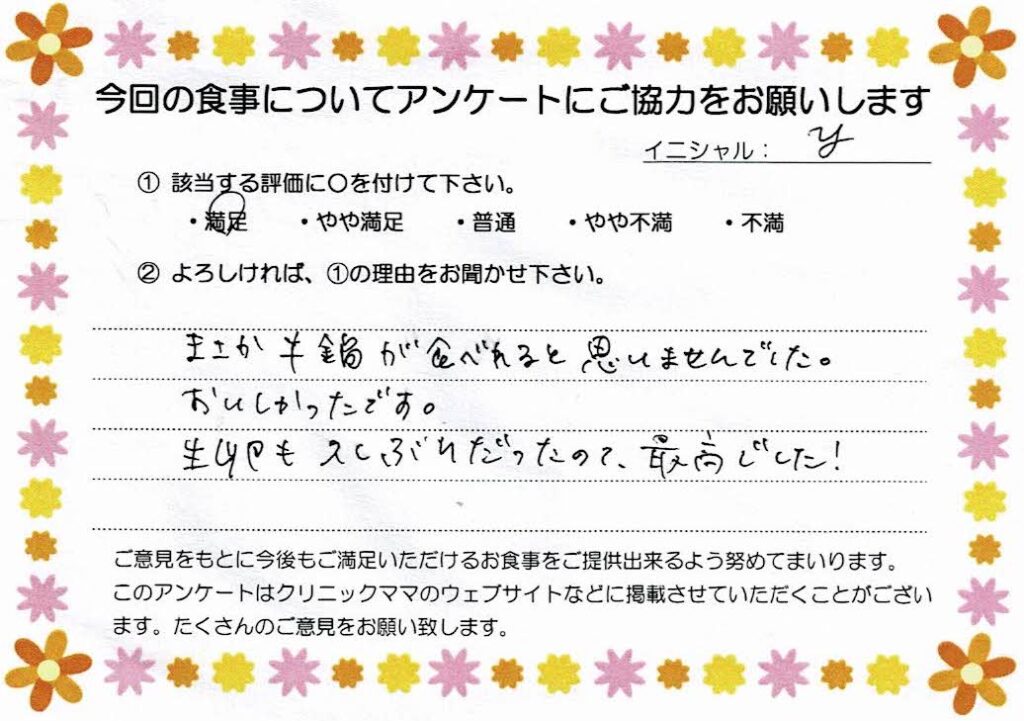 今回の食事についてアンケートにご協力をお願いします
イニシャル： y
① 該当する評価に〇を付けて下さい。
・満足 ・やや満足 ・普通 ・やや不満 ・不満
② よろしければ、①の理由をお聞かせ下さい。
まさか牛鍋が食べれると思いませんでした。
おいしかったです。
生卵も久しぶりだったので、最高でした！
ご意見をもとに今後もご満足いただけるお食事をご提供出来るよう努めてまいります。
このアンケートはクリニックママのウェブサイトなどに掲載させていただくことがござい
ます。たくさんのご意見をお願い致します。